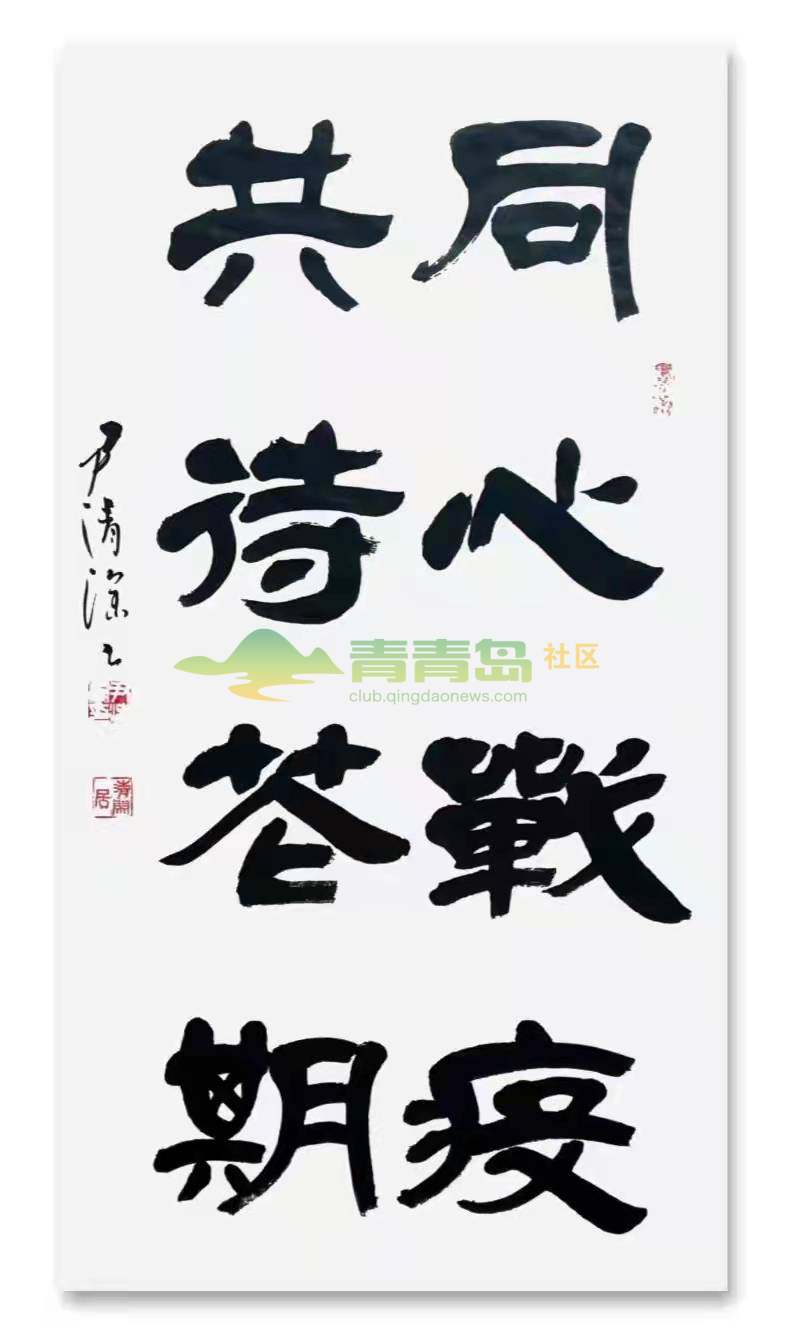 同心戰疫
共待花期
尹清深书
青青岛社区
club.qingdaonews.com